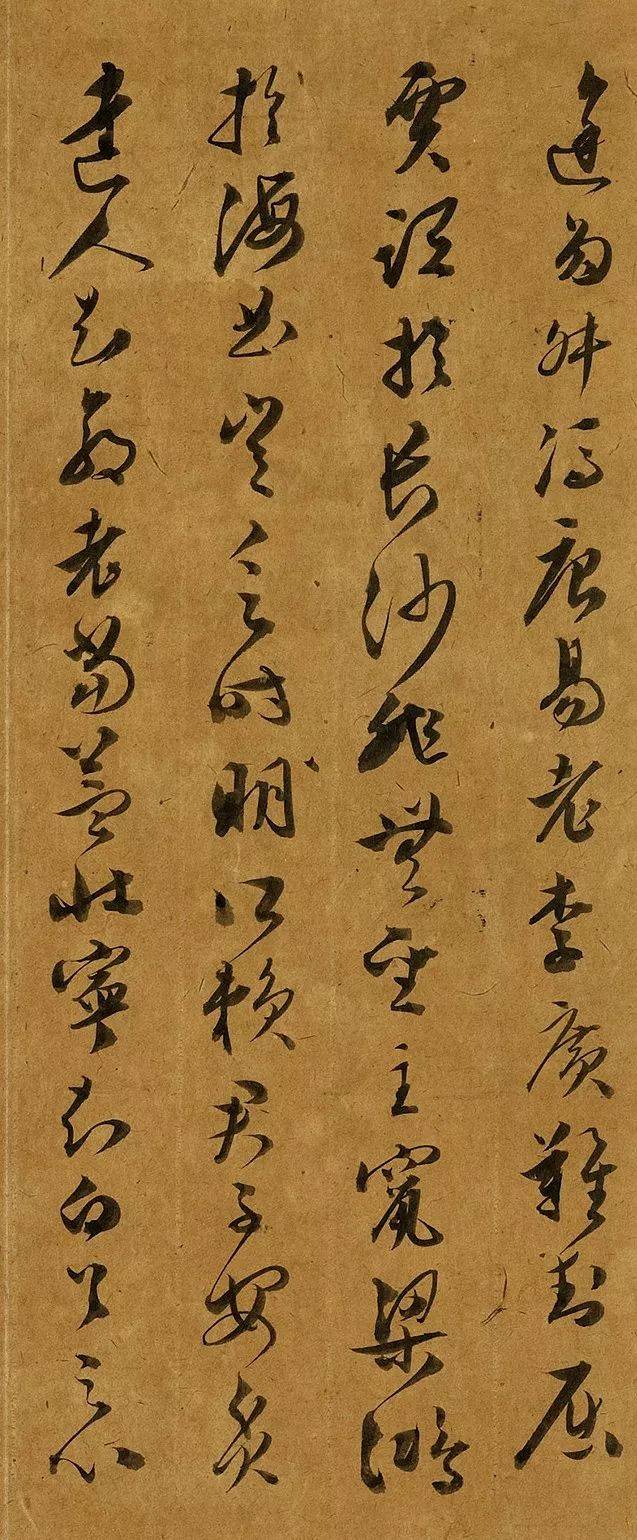 途多舛馮唐易老李廣難封屈
賈誼於長沙非無聖主竄梁鴻
於海曲豈乏時明所賴君子安貧
達人知命老當益壯寧知白首之心